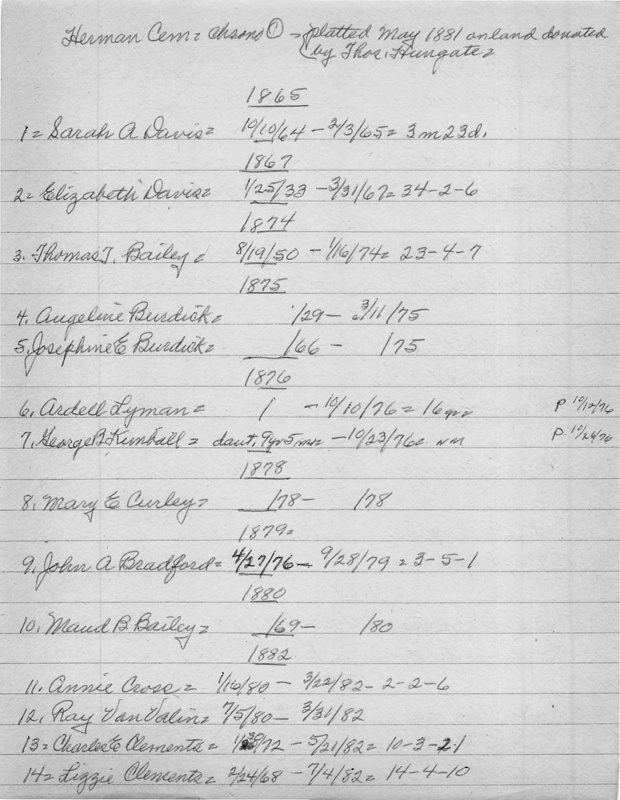 Herman Cem= chrono ① - platted May 1881 on land donated
by Thos. Hungate=
1865
1= Sarah A Davis= 10/10/64 - 2/3/65= 3m 23d.
1867
2= Elizabeth Davis= 1/25/33 - 3/31/67= 34-2-6
1874
3. Thomas T. Bailey= 8/19/50 - 1/16/74= 23-4-7
1875
4. Angeline Burdick= /29- 3/11/75
5. Josephine E Burdick= /66 - /75
1876
6. Ardell Lyman= / - 10/10/76= 16 yrs P 10/12/76
7. George B Kimball= daut. 9yr 5 mos= - 10/23/76= nm P. 10/24/76
1878
8. Mary E Curley= /78- /78
1879=
9. John A Bradford= 4/27/76- 9/28/79= 3-5-1
1880
10. Maud B Bailey= /69- /80
1882
11. Annie Cross= 1/16/80 - 3/22/82- 2-2-6
12. Ray Van Valin= 7/5/80- 3/31/82
13= Charles E Clements= 1/30/72 - 5/21/82= 10-3-21
14= Lizzie Clements= 2/24/68 - 7/4/82= 14-4-10